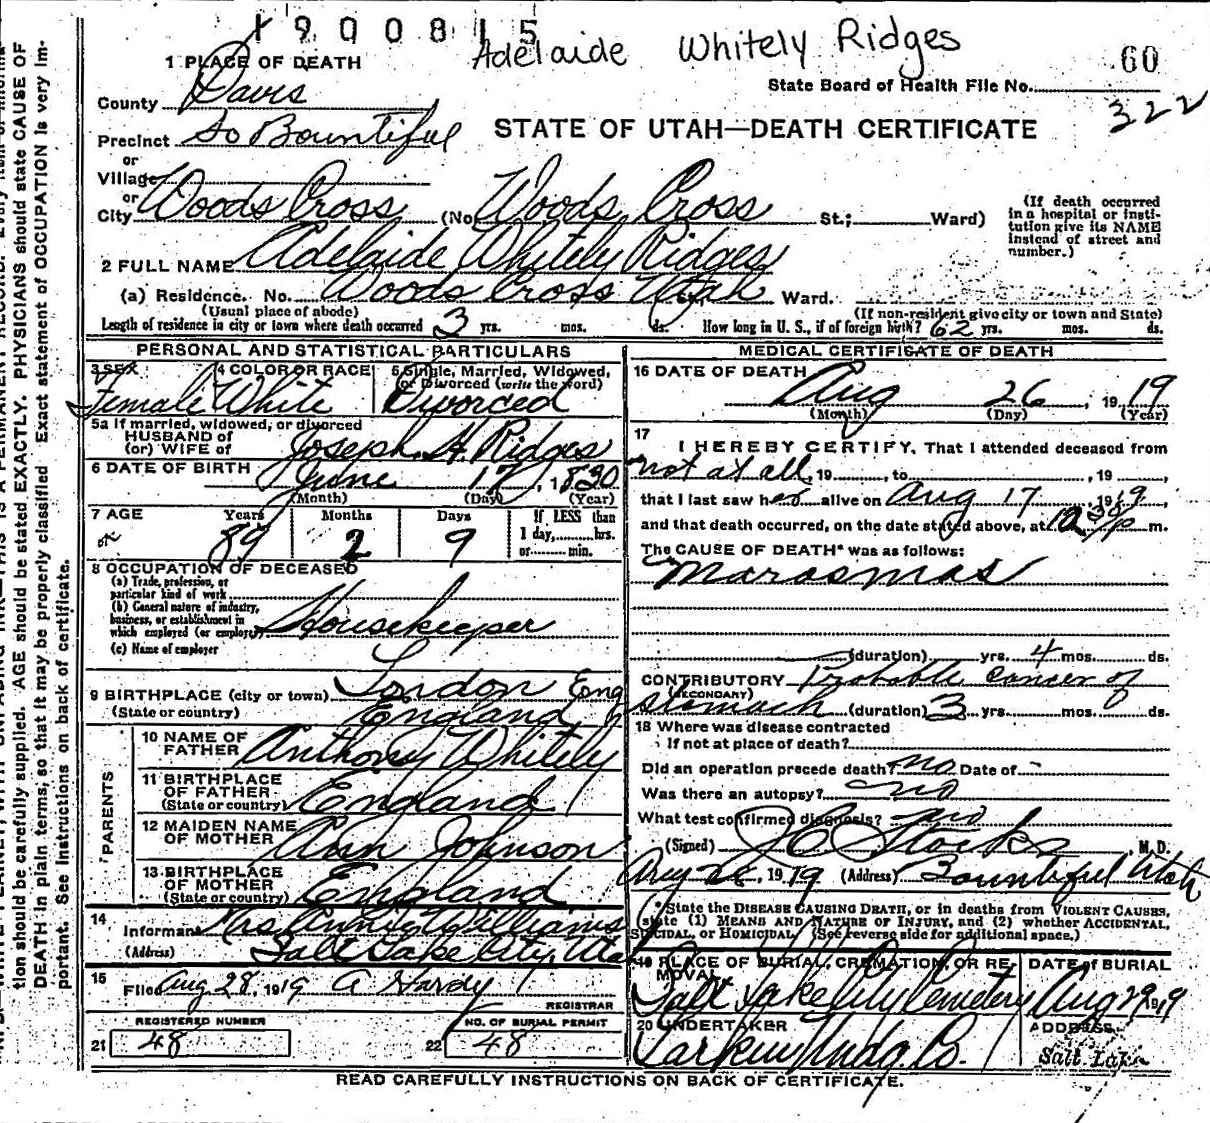 1900815
Adelaide Whitely Ridges
60
1 PLACE OF DEATH
State Board of Health File No.
322
County Davis
Precinct So Bountiful
STATE OF UTAH—DEATH CERTIFICATE
or
Village
or
City Woods Cross (No. Woods Cross St.; Ward)
(If death occurred in a hospital or insti-
tution give its NAME
instead of street and
number.)
2 FULL NAME Adelaide Whitely Ridges
(a) Residence. No. Woods Cross Utah Ward.
(Usual place of abode)
(If non-resident give city or town and State)
Length of residence in city or town where death occurred 3 yrs. mos. ds. How long in U. S., if of foreign birth? 62 yrs. mos. ds.
PERSONAL AND STATISTICAL PARTICULARS
3 SEX
Female
4 COLOR OR RACE
White
5 Single, Married, Widowed,
or Divorced (write the word)
Divorced
5a If married, widowed, or divorced
HUSBAND of
(or) WIFE of Joseph H. Ridges
6 DATE OF BIRTH June 17, 1830
(Month) (Day) (Year)
7 AGE Years Months Days If LESS than
89 2 9 1 day, hrs.
or min.
8 OCCUPATION OF DECEASED
(a) Trade, profession, or
particular kind of work
(b) General nature of industry,
business, or establishment in
which employed (or employer) Housekeeper
(c) Name of employer
9 BIRTHPLACE (city or town) London Eng
(State or country) England
PARENTS
10 NAME OF
FATHER Anthony Whitely
11 BIRTHPLACE
OF FATHER
(State or country) England
12 MAIDEN NAME
OF MOTHER Ann Johnson
13 BIRTHPLACE
OF MOTHER
(State or country) England
14
Informant Mrs Annie W Williams
(Address) Salt Lake City, Utah
15
Filed Aug 28, 1919 A Hardy
REGISTRAR
REGISTERED NUMBER
21 48
NO. OF BURIAL PERMIT
22 48
MEDICAL CERTIFICATE OF DEATH
16 DATE OF DEATH
Aug 26, 1919
(Month) (Day) (Year)
17
I HEREBY CERTIFY, That I attended deceased from
not at all, 19 , to , 19 ,
that I last saw her alive on Aug 17, 1919,
and that death occurred, on the date stated above, at 12 30 p m.
The CAUSE OF DEATH* was as follows:
Marasmas
(duration) yrs. 4 mos. ds.
CONTRIBUTORY Probable cancer of
(SECONDARY)
stomach (duration) 3 yrs. mos. ds.
18 Where was disease contracted
if not at place of death?
Did an operation precede death? no Date of -
Was there an autopsy? no
What test confirmed diagnosis? no
(Signed) J C Stocks, M. D.
Aug 28, 1919 (Address) Bountiful Utah
* State the DISEASE CAUSING DEATH, or in deaths from VIOLENT CAUSES,
state (1) MEANS AND NATURE OF INJURY, and (2) whether ACCIDENTAL,
SUICIDAL, OR HOMICIDAL. (See reverse side for additional space.)
19 PLACE OF BURIAL, CREMATION, OR RE-
MOVAL
Salt Lake City Cemetery
DATE of BURIAL
Aug 29 1919
20 UNDERTAKER
Larkin Undg. Co.
ADDRESS
Salt Lake
READ CAREFULLY INSTRUCTIONS ON BACK OF CERTIFICATE.
tion should be carefully supplied. AGE should be stated EXACTLY. PHYSICIANS should state CAUSE OF
DEATH in plain terms, so that it may be properly classified. Exact statement of OCCUPATION is very im-
portant. See instructions on back of certificate.